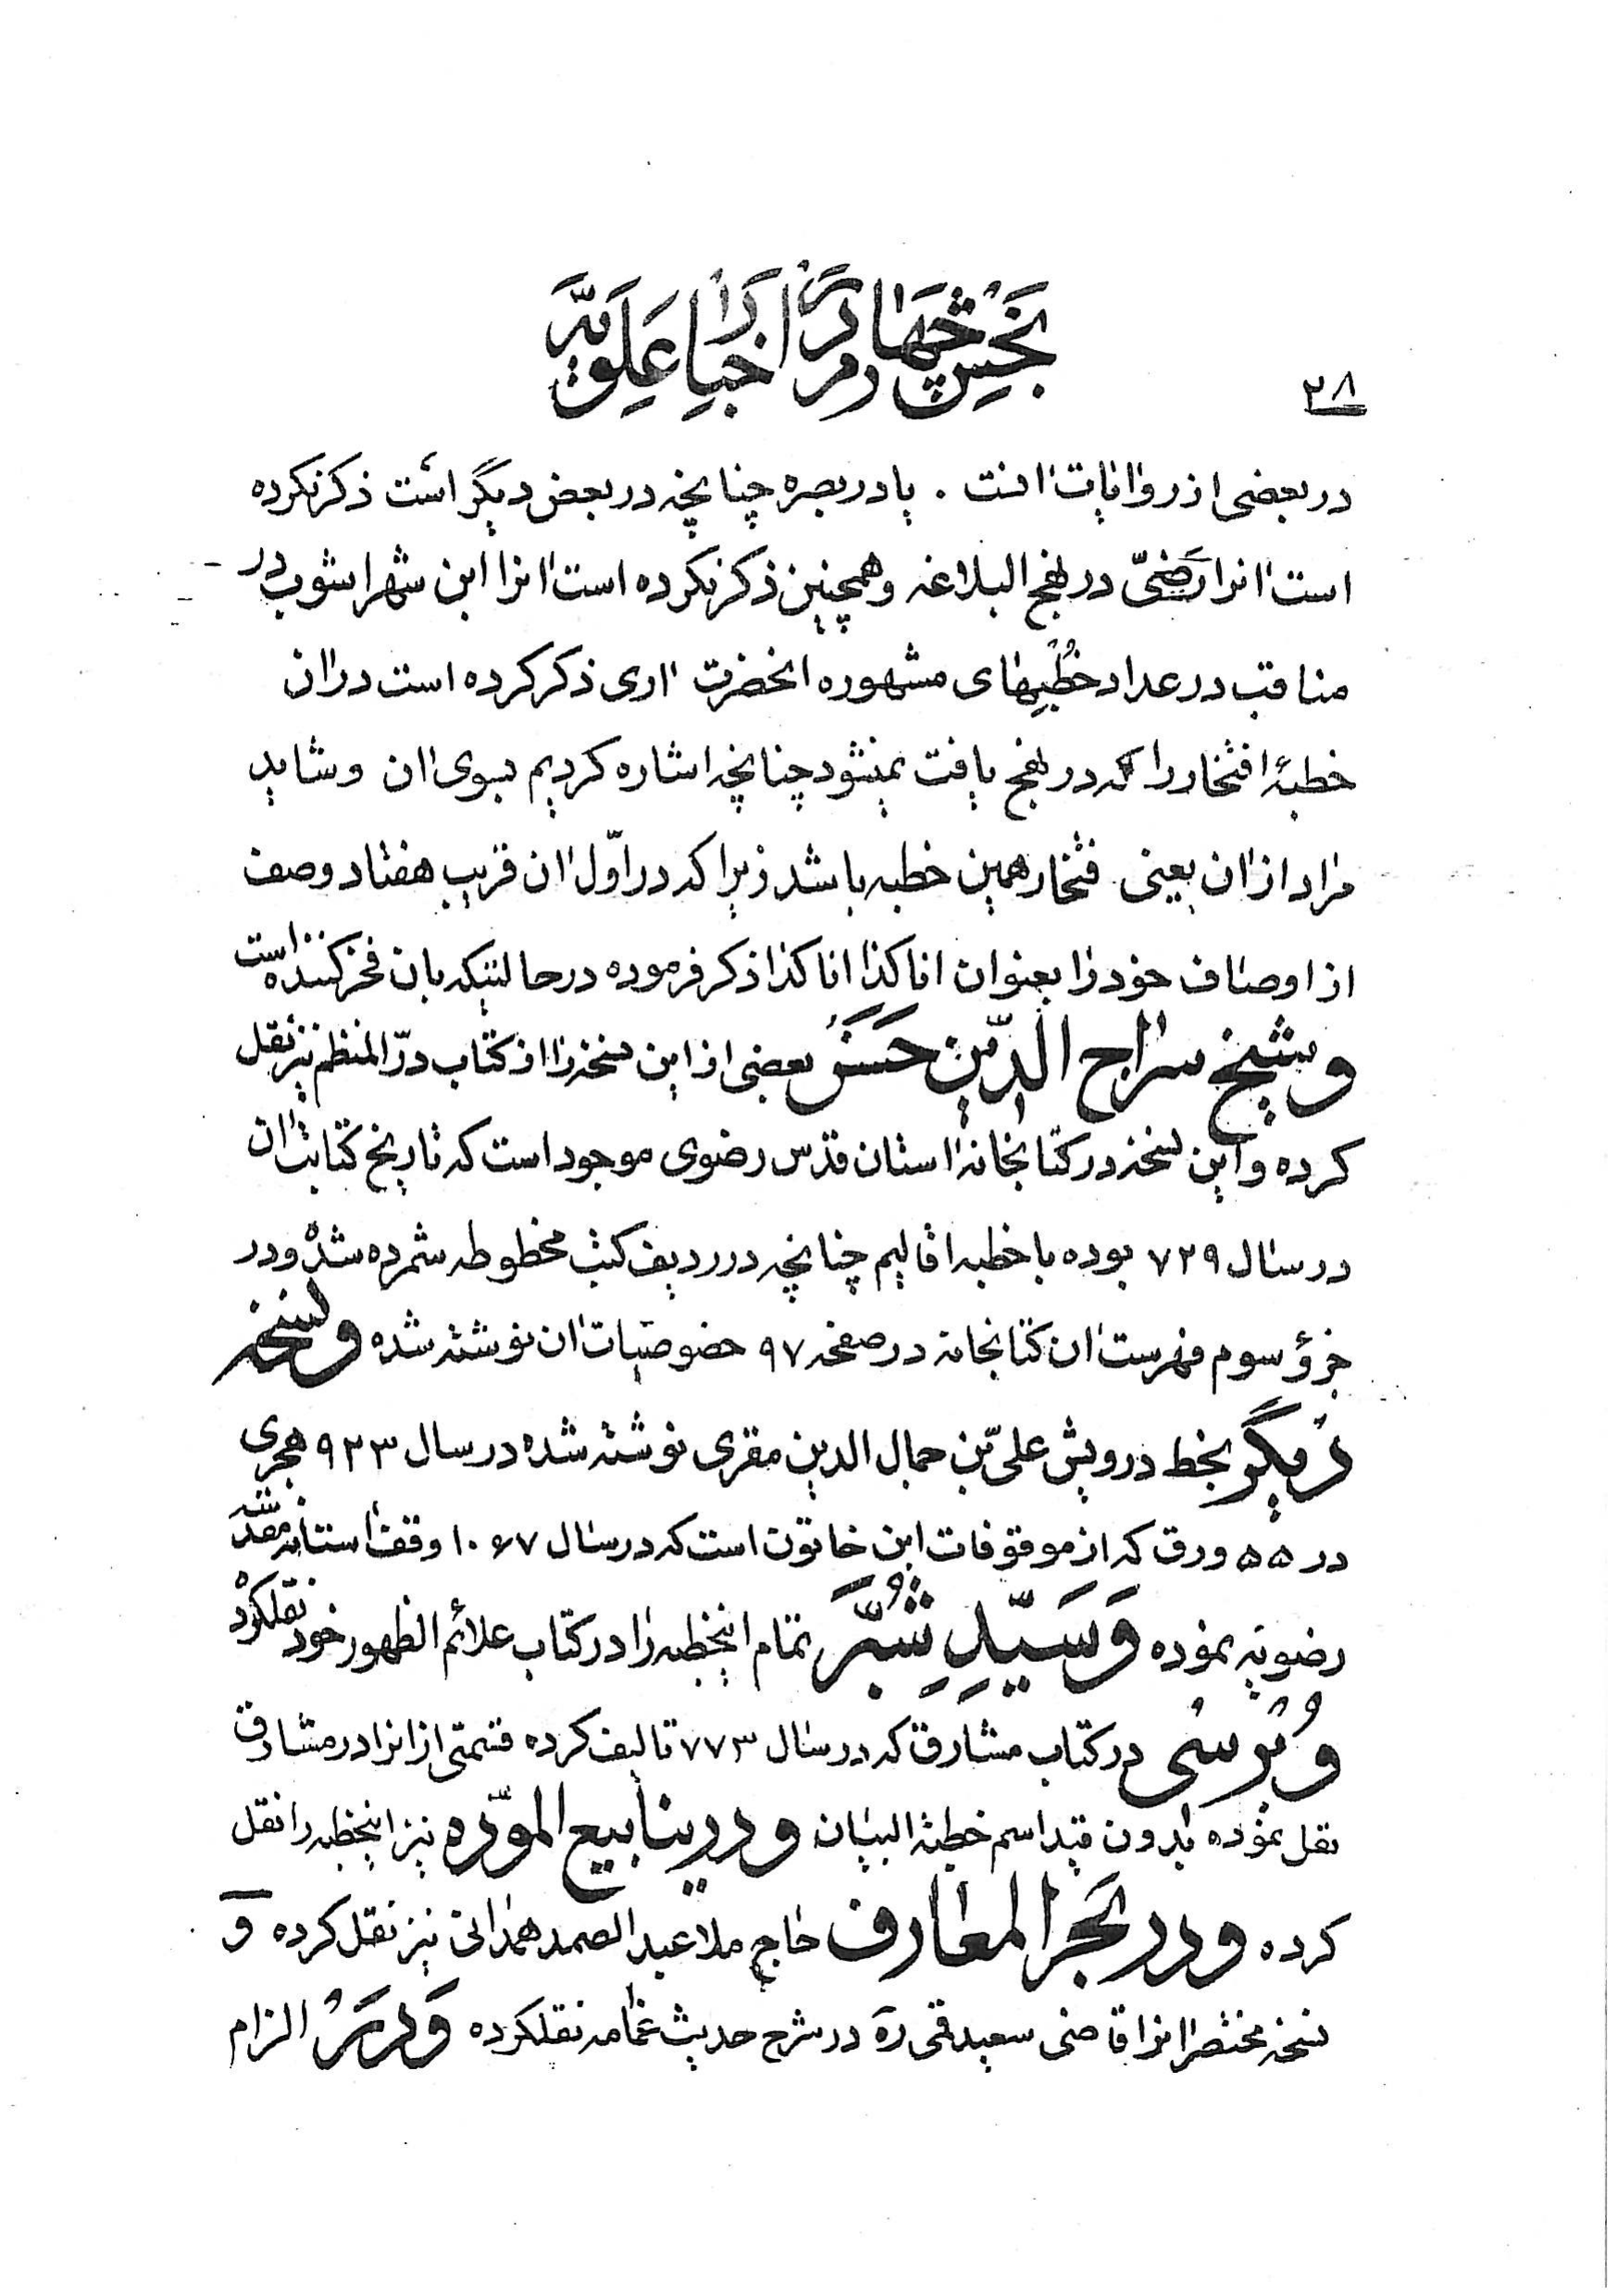 بخش چهارم در اخبار علویه
۲۸
در بعضی از روایات انست . یا در بصره چنانچه در بعض دیگر است ذکر نکرده
است انرا رضیّ در نهج البلاغه و همچنین ذکر نکرده است انرا ابن شهراشوب در
مناقب در عداد خُطُبهای مشهوره انحضرت اری ذکر کرده است در ان
خطبهٔ افتخار را که در نهج یافت نمیشود چنانچه اشاره کردیم بسوی ان و شاید
مراد از ان یعنی فتخار همین خطبه باشد زیرا که در اوّل ان قریب هفتاد وصف
از اوصاف خود را بعنوان انا کذا انا کذا ذکر فرموده در حالتیکه بان فخر کننده است
و شیخ سراج الدّین حَسَن بعضی از این نسخه را از کتاب درّ المنظم نیز نقل
کرده و این نسخه در کتابخانه استان قدس رضوی موجود است که تاریخ کتابت ان
در سال ۷۲۹ بوده با خطبه اقالیم چنانچه در ردیف کتب مخطوطه شمرده شده و در
جزؤ سوم فهرست ان کتابخانه در صفحه ۹۷ خصوصیات ان نوشته شده و نسخه
دیگر بخط درویش علی بن جمال الدین مقری نوشته شده در سال ۹۲۳ هجری
در ۵۵ ورق که از موقوفات ابن خاتون است که در سال ۱۰۶۷ وقف استانه مقدسه
رضویه نموده وَ سَیِّدِ شُبَّر تمام اینخطبه را در کتاب علائم الظهور خود نقلکرده
و بُرسی در کتاب مشارق که در سال ۷۷۳ تالیف کرده قسمتی از انرا در مشارق
نقل نموده بدون قید اسم خطبة البیان و در ینابیع المودّه نیز اینخطبه را نقل
کرده و در بحر المعارف حاج ملا عبد الصمد همدانی نیز نقل کرده و
نسخه مختصر انرا قاضی سعید قمی ره در شرح حدیث غمامه نقلکرده وَ دَر الزام